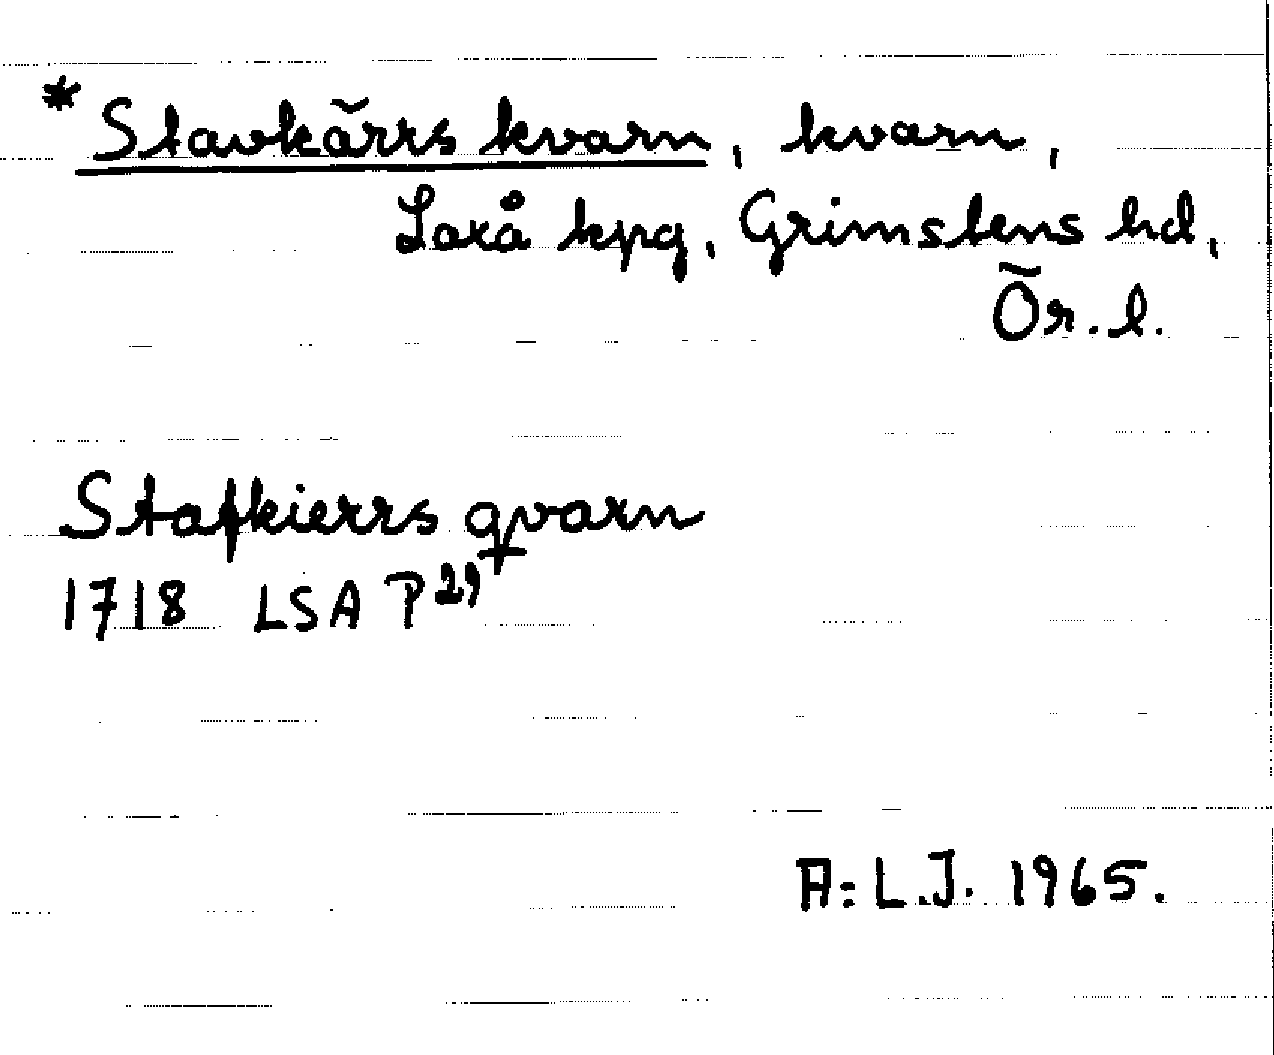 * Stavkärrs kvarn, kvarn,
Laxå kpg, Grimstens hd,
Ör. l.
Stafkierrs qvarn
1718 LSA P 29
A: L.J. 1965.